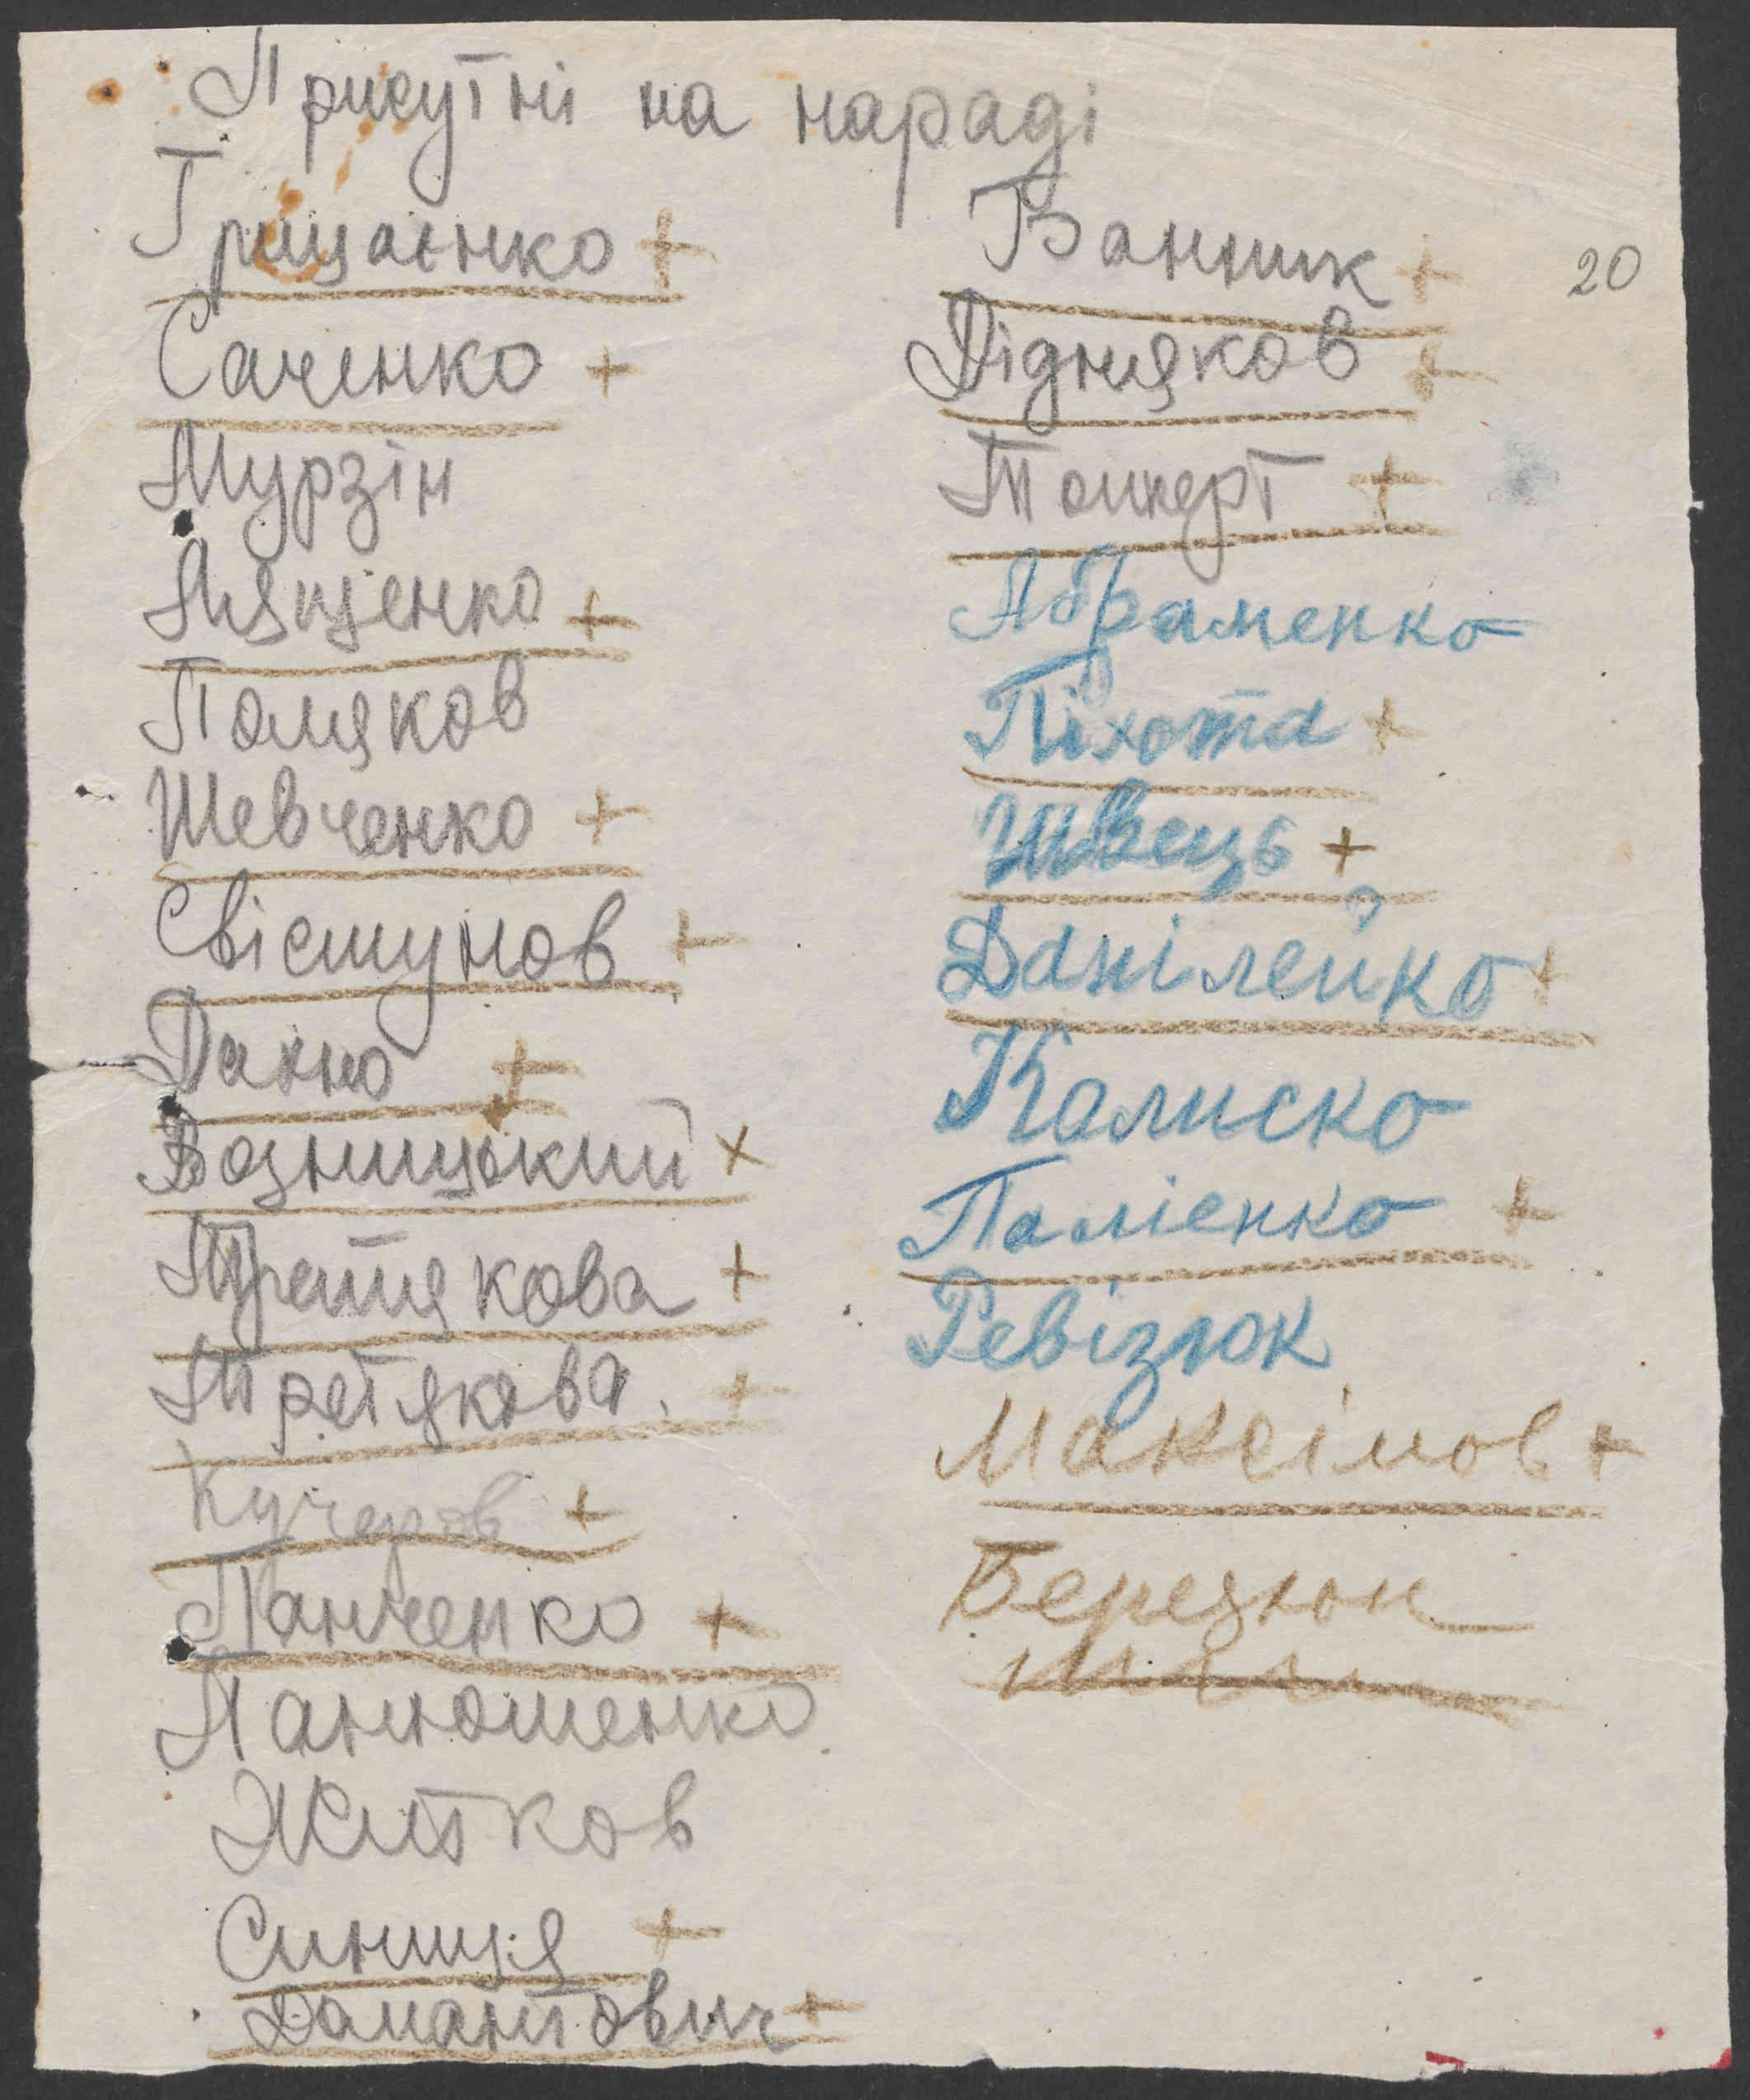 Присутні на нараді
20
Грищаєнко +
Саченко +
Мурзін
Лященко +
Поляков
Шевченко +
Свістунов +
Дахно +
Возницький ×
Третякова +
Третякова. +
Кучеров +
Панченко +
Панюшенко
Житков
Синиця +
Домантович +
Банник +
Підняков +
Абраменко
Піхота +
Швець +
Даніленко +
Колиско
Палієнко +
Ревізюк
Максімов +
Березюк